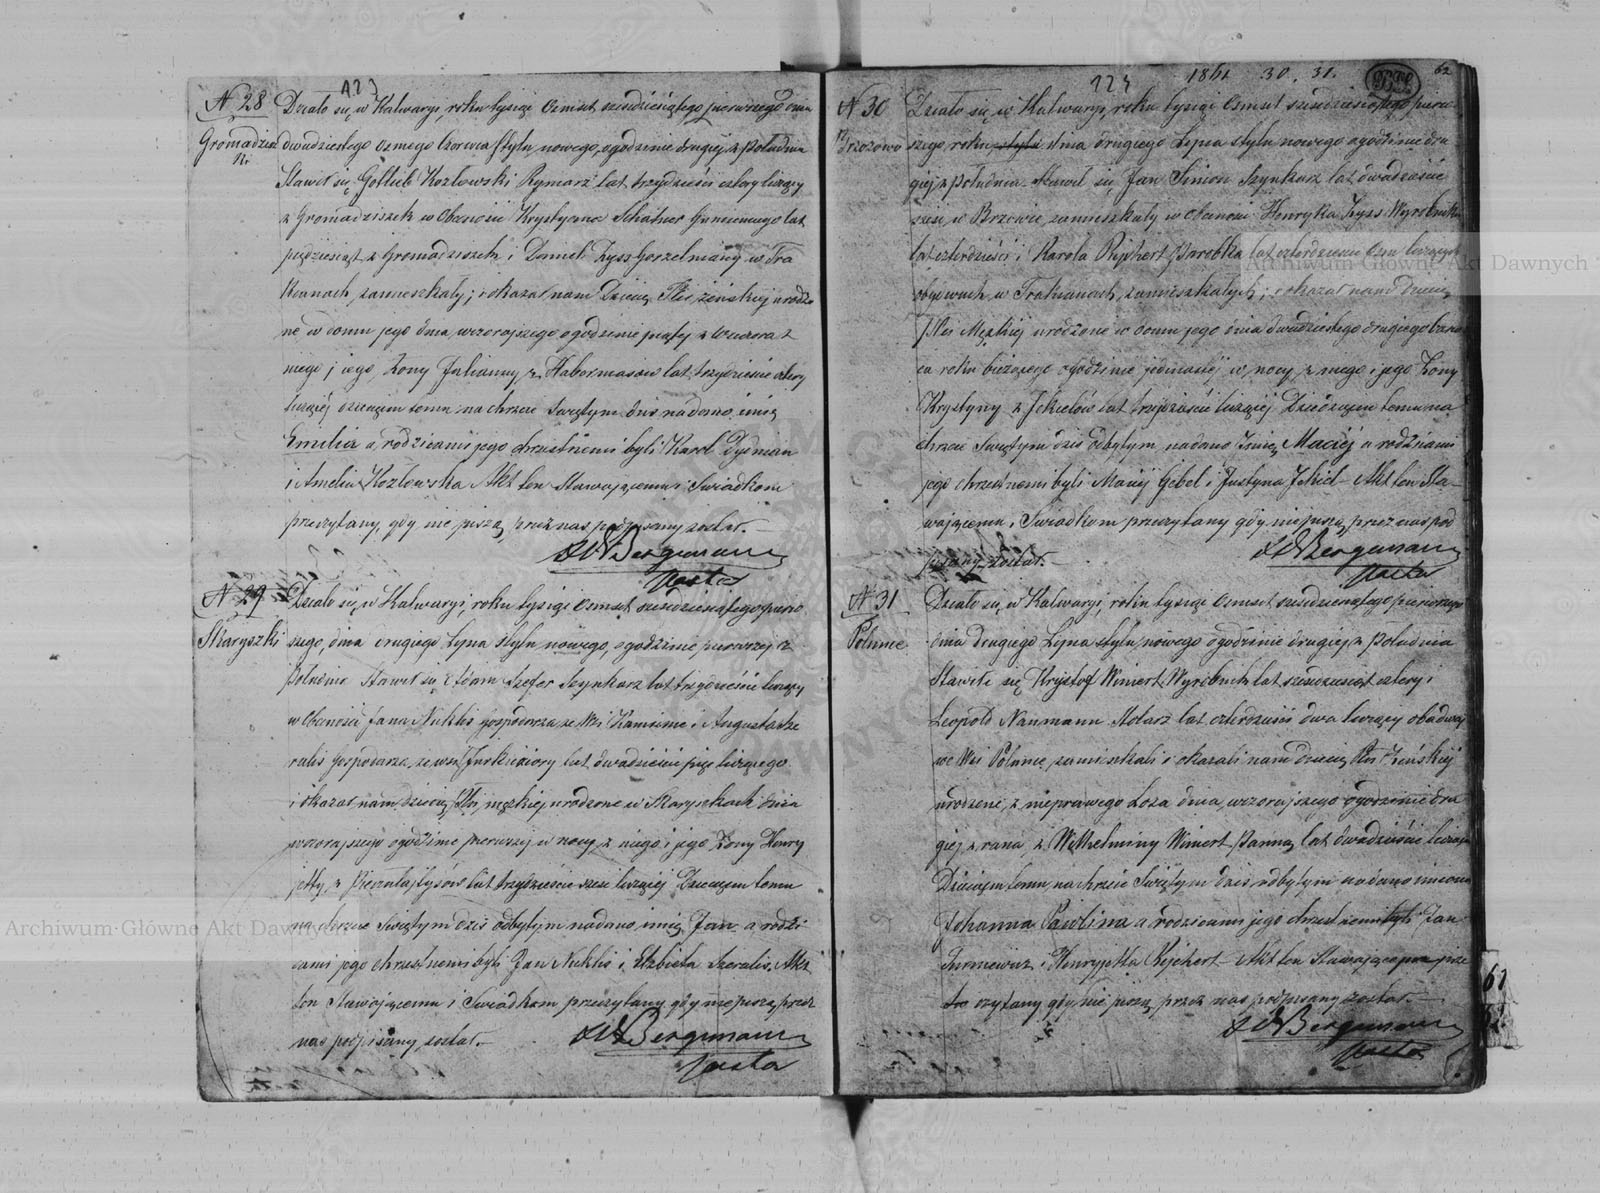 123
N 28
Gromadzisz
ki
Działo się w Kalwaryi, roku tysiąc osmset szesdziesiątego pierwszego dnia
dwudziestego osmego Czerwca stylu nowego, ogodzinie drugiej z południa
Stawił się Gotlieb Kozłowski Rymarz lat trzydzieści cztery liczący
z Gromadziszek w Obecności Krystyana Schatner Gumiennego lat
pięćdziesiąt z Gromadziszek i Daniel Zyss Gorzelniany w Tra
kianach, zamieszkały; i okazał nam Dziecię Płci żeńskiej urodzo
ne w domu jego dnia wczorajszego ogodzinie piątej z wieczora z
niego i jego Żony Julianny z Habermanów lat trzydzieście cztery
liczącej dziecięciu temu na chrzcie Swiętym dnia nadano imię
Emilia a rodzicami jego chrzestnemi byli Karol Dydman
i Amelia Kozłowska Akt ten Stawającemu i Swiadkom
przeczytany, gdy nie piszą, przez nas podpisany został.
Bergemann
Pastor
N 29
Skaryszki
Działo się w Kalwaryi, roku tysiąc osmset szesdziesiątego pierw
szego, dnia drugiego Lipca stylu nowego, ogodzinie pierwszej z
południa Stawił się Adam Szefer Szynkarz lat trzydzieście liczący
w Obecności Jana Nuklis gospodarza ze Wsi Kamionie i Augusta Sze
ralis Gospodarza, ze wsi lat dwadzieście pięć liczącego
i okazał nam dziecię Płci męzkiej urodzone w Skaryszkach dnia
wczorajszego ogodzinie pierwszej w nocy z niego i jego Żony Henry
jetty, z lat trzydzieście szesc liczącej Dziecięciu temu
na chrzcie Swiętym dziś odbytym nadano imię Jan a rodzi
cami jego chrzestnemi byli Jan Nuklis i Elżbieta Szeralis. Akt
ten Stawającemu i Swiadkom przeczytany gdy nie piszą przez
nas podpisany został.
Bergemann
Pastor
124
1861 30. 31.
62
N 30
Brzozowo
Działo się w Kalwaryi, roku tysiąc osmset szesdziesiątego pierw
szego, roku stylu dnia drugiego Lipca stylu nowego ogodzinie dru
giej z południa Stawił się Jan Simon Szynkarz lat dwadzieście
szesc w Brzowie zamieszkały w obecnosci Henryka Zyss Wyrobnika
lat czterdzieści i Karola Rejchert Parobka lat czterdzieście osm liczących
obydwuch w Trakianach, zamieszkałych; i okazał nam Dziecię
Płci Męzkiej urodzone w domu jego dnia dwudziestego drugiego Czerw
ca roku bieżącego ogodzinie jedenastej w nocy z niego i jego Żony
Krystyny z Jekielów lat trzydzieście liczącej Dziecięciu temu na
chrzcie Swiętym dziś odbytym nadano Imię Maciej a rodzicami
jego chrzestnemi byli Maciej Gebel i Justyna Jekiel Akt ten Sta
wającemu i Swiadkom przeczytany gdy nie piszą przez nas pod
pisany został.
Bergemann
Pastor
N 31
Polunce
Działo się w Kalwaryi, roku tysiąc osmset szesdziesiątego pierwszego
dnia drugiego Lipca stylu nowego ogodzinie drugiej z południa
Stawili się Krysztof Winiert Wyrobnik lat szescdziesiąt cztery i
Leopold Naumann Stolarz lat czterdzieści dwa liczący obadwaj
we Wsi Polunce zamieszkali i okazali nam dziecię Płci Żeńskiej
urodzone z nieprawego Łoża dnia wczorajszego ogodzinie dru
giej z rana z Wilhelminy Winiert Panny lat dwadzieście liczącej
Dziecięciu temu na chrzcie Swiętym dzis odbytym nadano imiona
Johanna Pawlina a rodzicami jego chrzestnemi byli Jan
Jurniewicz i Henryjetta Rejchert Akt ten Stawającym prze
czytany gdy nie piszą przez nas podpisany został.
Bergemann
Pastor
61
62
Archiwum Główne Akt Dawnych
Archiwum Główne Akt Dawnych